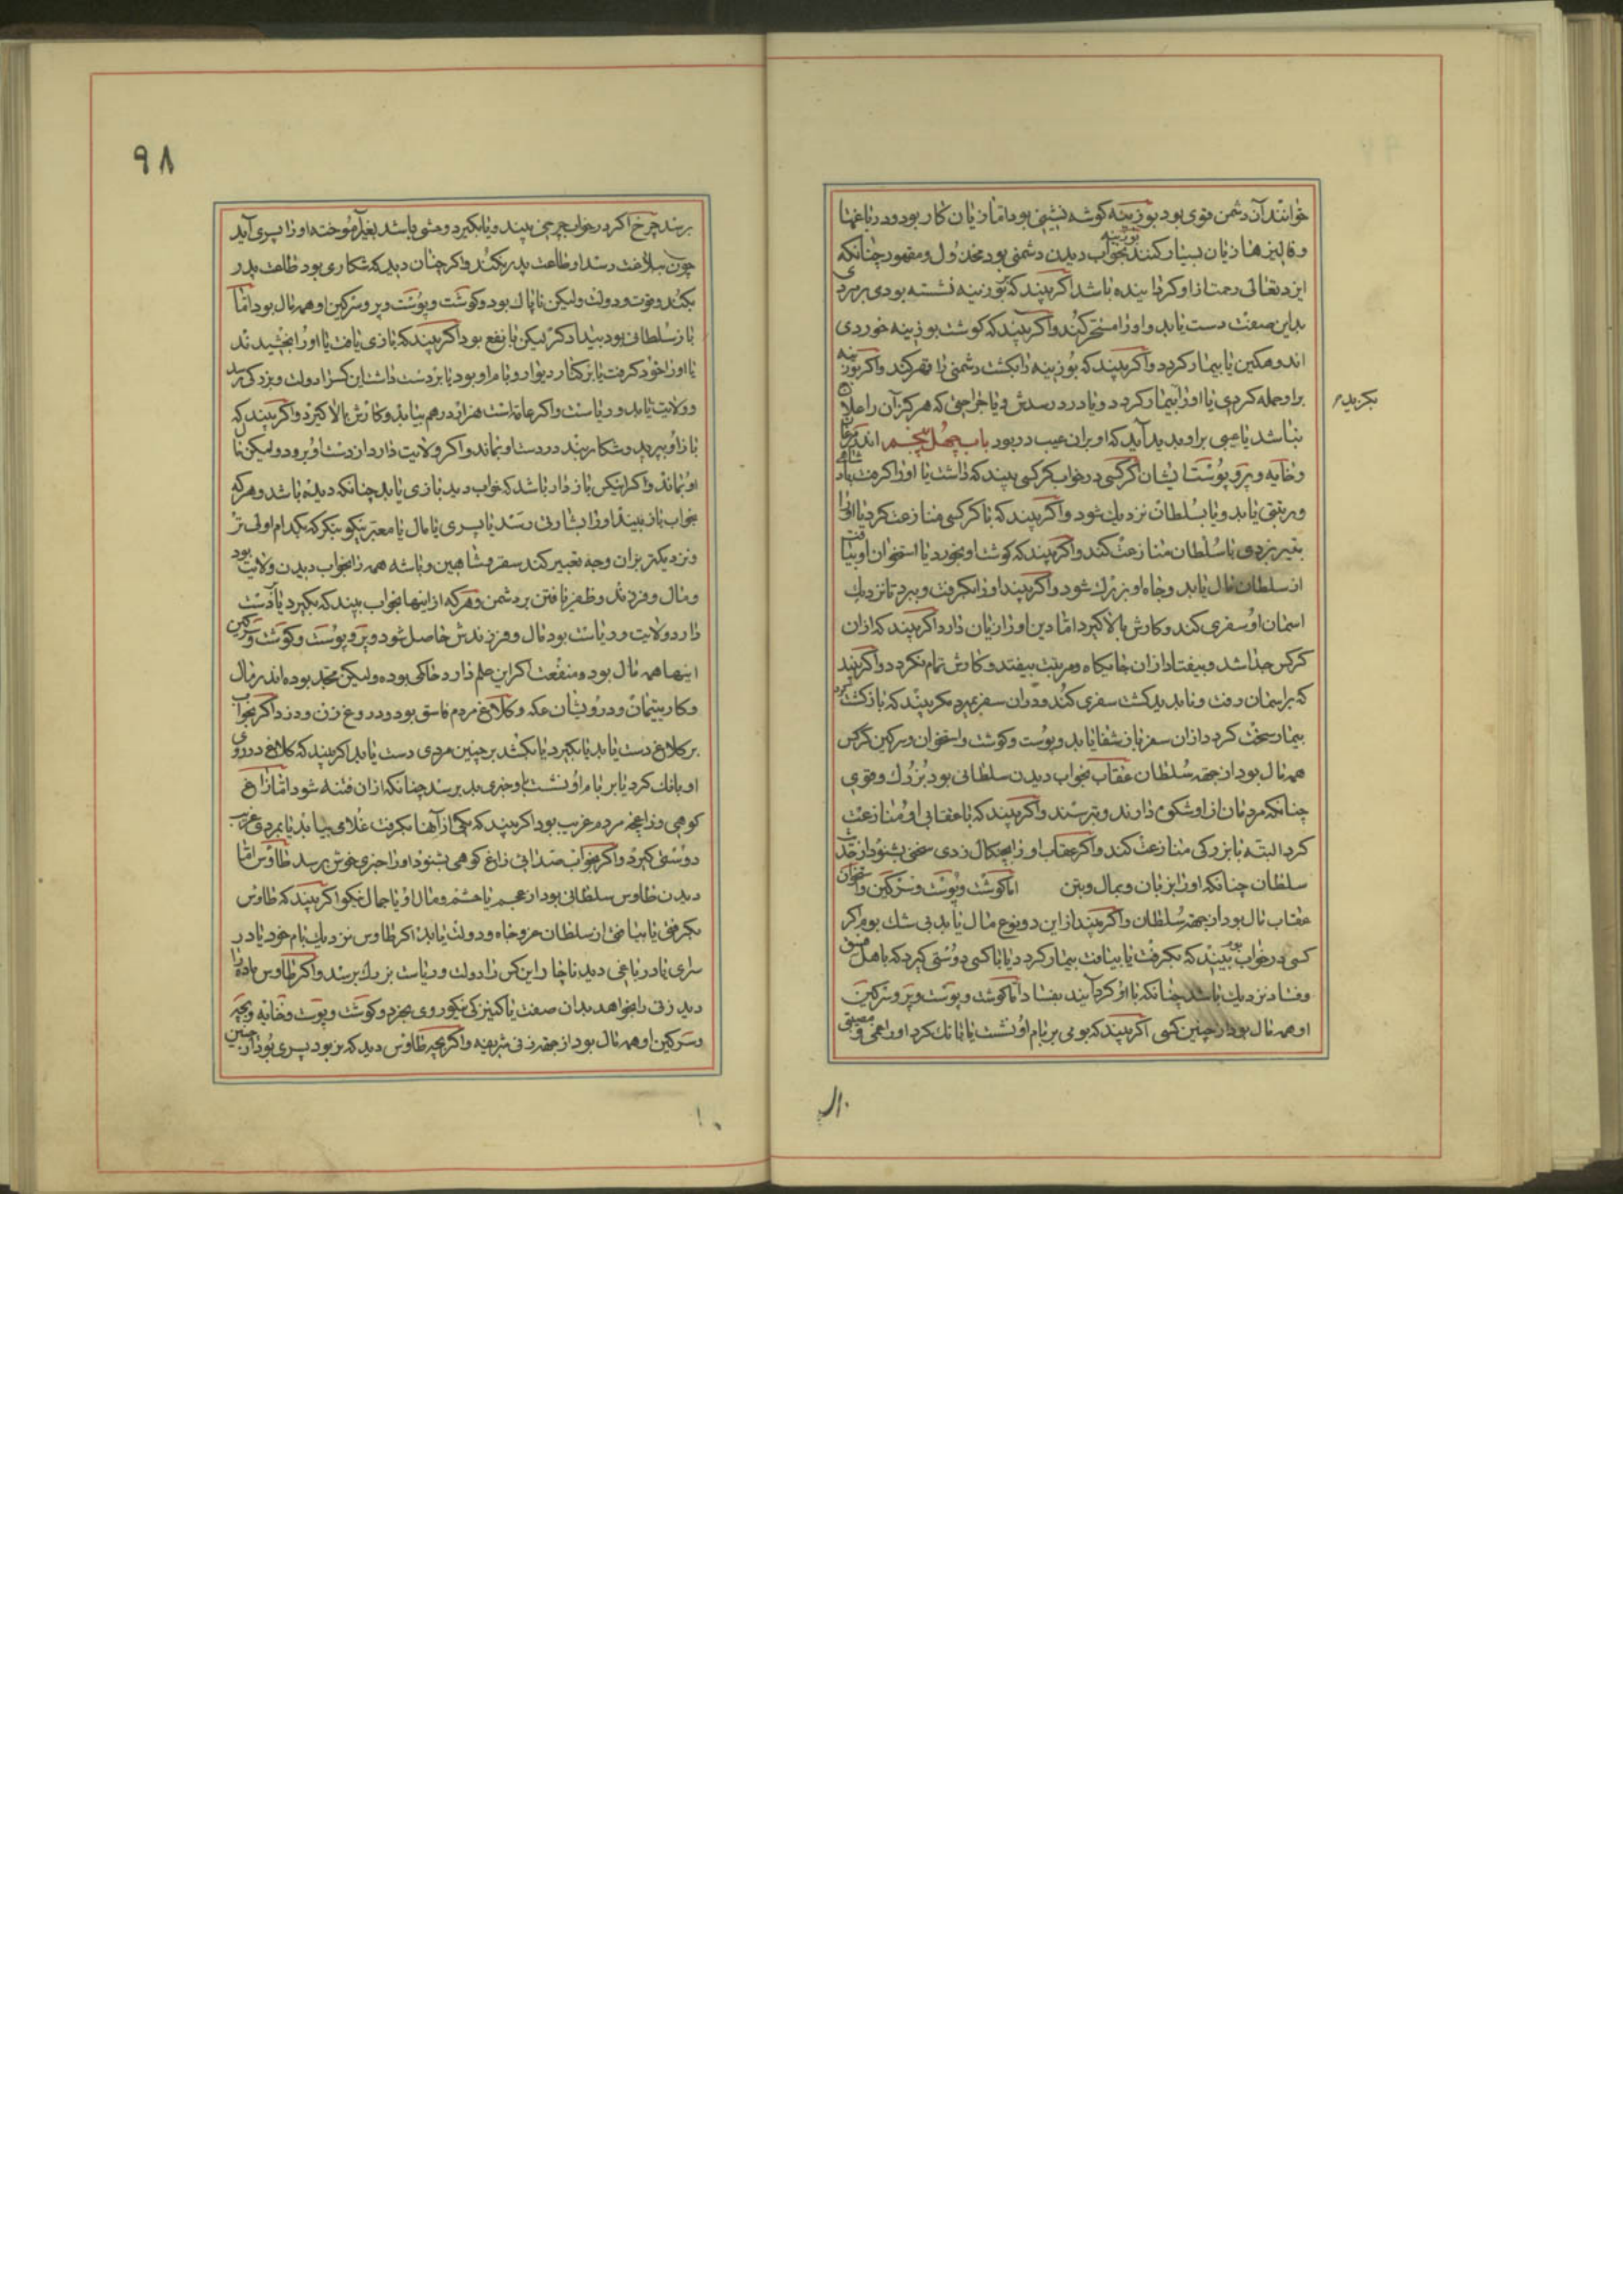 خوانند آن دشمن قوی بود بوزینه کوشه نشینی بود امّا زیان کار بود و در باغها
و فالیزها زیان بسیار کنند بوزینه بخواب دیدن دشمنی بود مخذول و مقهور چنانکه
ایزد تعالی رحمت از او کردانیده باشد اکر بیند که بوزینه نشسته بودی بر مردی
بداین صفت دست یابد و او را مسخر کند و اکر بیند که کوشت بوزینه خوردی
اندوهکین یا بیمار کردد و اکر بیند که بوزینه را بکشت دشمنی را قهر کند و اکر بوزینه
بر او حمله کردی یا او را بیمار کردد و یا درد رسدش و یا خراجی که هرکز آن را علاج
نکزیدم
نباشد یا عیبی بر او پدید آید که او بر آن عیب در بود باب چهل پنجم اندر مرغان
و خایه و پر و پوست ایشان کرکسی در خواب کرکسی بیند که داشت یا او را کرفت پادشاهی
و مرتبتی یابد و یا بسلطان نزدیک شود و اکر بیند که با کرکسی منازعت کرد یا او را
بتیر بزدی با سلطان منازعت کند و اکر بیند که کوشت او بخورد یا استخوان او بیافت
از سلطان مال یابد و جاه او بزرک شود و اکر بیند او را بکرفت و ببرد تا نزدیک
اسمان او سفری کند و کارش بالا کیرد امّا دین او را زیان دارد اکر بیند که از ان
کرکس جدا شد و بیفتاد از ان جایکاه و مرتبت بیفتد و کارش تمام نکردد و اکر بیند
که بر اسمان رفت و ناپدید کشت سفری کند و در ان سفر بمیرد مکر بیند که باز کشت
بیمار سخت کردد از ان سفر باز شفا یابد و پوست و کوشت و استخوان و سرکین کرکس
همه مال بود از جهة سلطان عقاب بخواب دیدن سلطانی بود بزرک و قوی
چنانکه مردمان از او شکوی دارند و ترسند و اکر بیند که با عقابی او منازعت
کرد البته با بزرکی منازعت کند و اکر عقاب او را بچنکال زدی سخنی بشنود از خداوند
سلطان چنانکه او را بزبان و بمال و بتن اما کوشت و پوست و سرکین و استخوان
عقاب مال بود از جهة سلطان و اکر بیند از این دو نوع مال یابد بی شک بوم اکر
کسی در خواب بوم بیند که بکرفت یا بیافت بیمار کردد یا با کسی دوستی کیرد که باهل فسق
و فساد نزدیک باشد چنانکه با او کرد آیند بفساد امّا کوشت و پوست و پر و سرکین
او همه مال بود از چنین کسی اکر بیند که بومی بر بام او نشست یا بانک کرد او را غمی و مصیبتی
۹۸
برسد چرخ اکر در خواب چرخی بیند و یا بکیرد وحشی باشد بغیر آموخته او را پسری آید
چون ببلاغت رسد او طاعت پدر نکند و اکر چنان دید که شکاری بود طاعت پدر
بکند و قوت و دولت ولیکن ناپاک بود و کوشت و پوست و پر و سرکین او همه مال بود امّا
باز سلطانی بود بیدادکر لیکن با نفع بود اکر بیند که بازی یافت یا او را بخشیدند
یا او را خود کرفت یا بر کنار دیوار و بام او بود یا بر دست داشت این کس را دولت و بزرکی رسد
و ولایت یابد و ریاست و اکر عامه است هزار درهم بیابد و کارش بالا کیرد و اکر بیند که
باز او بپرید و شکار بیند در دست او نماند و اکر ولایت دارد از دست او برود ولیکن مال
او بماند و اکر اینکس بازدار باشد که خواب دید بازی یابد چنانکه دیده باشد و هر که
بخواب باز بیند او را بشارتی رسد یا پسری یا مال یا معبر نیکو بنکرد که کدام اولی تر
و نزدیکتر بر ان وجه تعبیر کند سقر و شاهین و باشه همه را بخواب دیدن ولایت بود
و مال و فرزند و ظفر یافتن بر دشمن و هر که از اینها بخواب بیند که بکیرد یا دست
دارد ولایت و ریاست بود مال و فرزندش حاصل شود و پر و پوست و کوشت و سرکین
اینها همه مال بود و منفعت اکر این علم دارد خاکی بوده ولیکن مجد بوده اند در مال
و کار یتیمان و درویشان عکه و کلاغ مردم فاسق بود و دروغ زن و دزد اکر بخواب
بر کلاغ دست یابد یا بکیرد یا بکشد بر چنین مردی دست یابد اکر بیند که کلاغ در روی
او بانک کرد یا بر بام او نشست باو خبری بد برسد چنانکه از ان فتنه شود امّا زاغ
کوهی و زاغچه مردم غریب بود اکر بیند که یکی از آنها بکرفت غلامی بیابد یا بمردی غریب
دوستی کیرد و اکر بخواب صدائی زاغ کوهی بشنود او را خبری خوش برسد طاوس امّا
دیدن طاوس سلطانی بود از عجم با حشم و مال او با جمال نیکو اکر بیند که طاوس
بکرفتی یا بیافتی از سلطان عز و جاه و دولت یابد اکر طاوس نزدیک بام خود یا در
سرای یا در باغی دید ناچار این کس را دولت و ریاست بزرک برسد و اکر طاوس ماده را
دید زنی را بخواهد بدان صفت یا کنیزکی نیکوروی بخرد و کوشت و پوست و خایه و بچه
و سرکین او همه مال بود از جهة زنی شریفه و اکر بچه طاوس دید که نر بود پسری بود از چنین